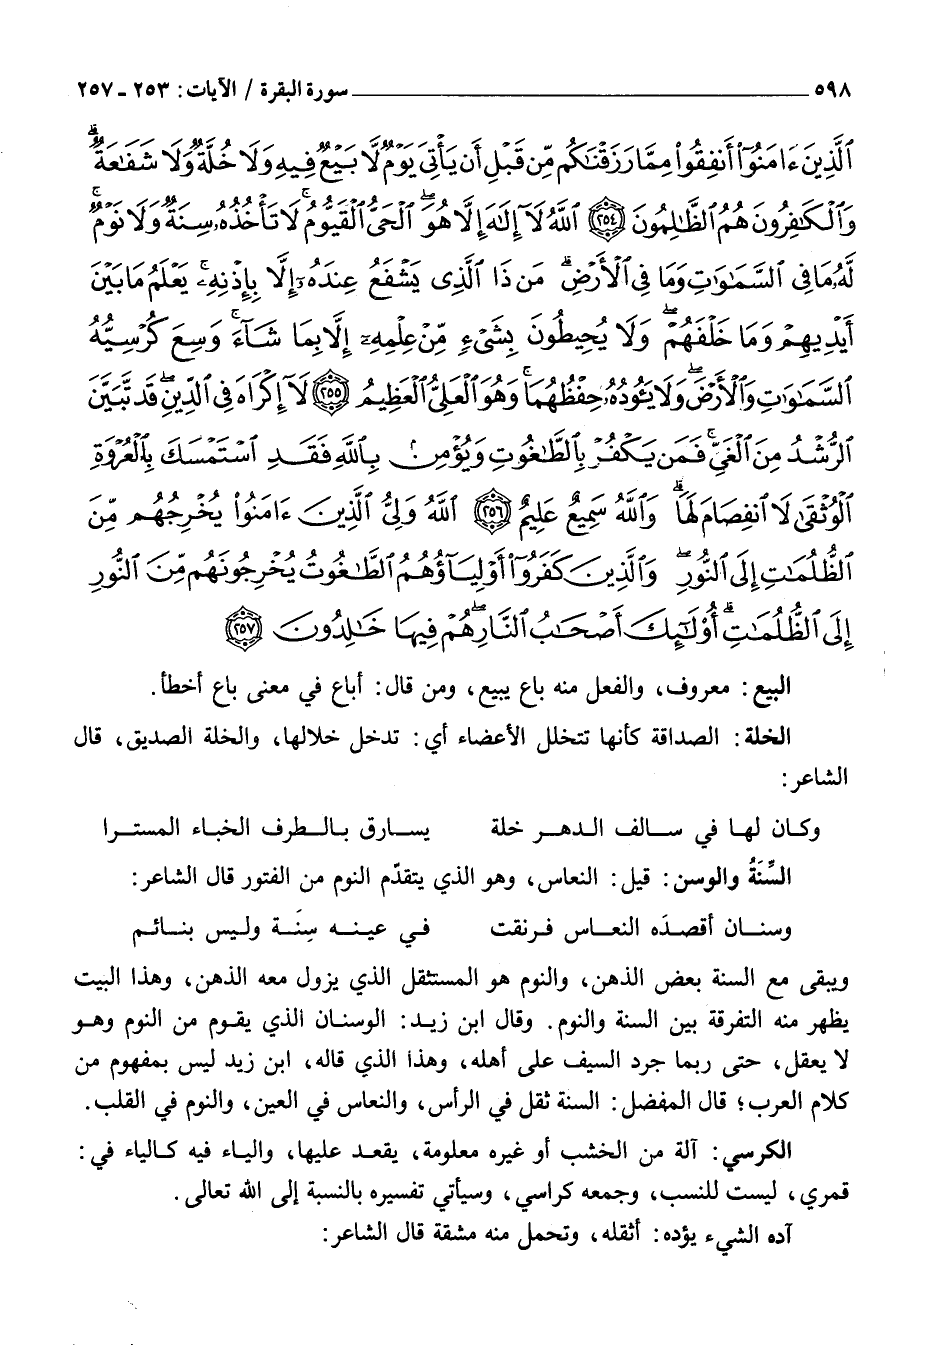 ٥٩٨ ــــــ سورة البقرة / الآيات: ٢٥٣ ـ ٢٥٧
ٱلَّذِينَ ءَامَنُوٓا۟ أَنفِقُوا۟ مِمَّا رَزَقْنَٰكُم مِّن قَبْلِ أَن يَأْتِىَ يَوْمٌ لَّا بَيْعٌ فِيهِ وَلَا خُلَّةٌ وَلَا شَفَٰعَةٌ ۗ
وَٱلْكَٰفِرُونَ هُمُ ٱلظَّٰلِمُونَ ﴿٢٥٤﴾ ٱللَّهُ لَآ إِلَٰهَ إِلَّا هُوَ ۖ ٱلْحَىُّ ٱلْقَيُّومُ ۚ لَا تَأْخُذُهُۥ سِنَةٌ وَلَا نَوْمٌ ۚ
لَّهُۥ مَا فِى ٱلسَّمَٰوَٰتِ وَمَا فِى ٱلْأَرْضِ ۗ مَن ذَا ٱلَّذِى يَشْفَعُ عِندَهُۥٓ إِلَّا بِإِذْنِهِۦ ۚ يَعْلَمُ مَا بَيْنَ
أَيْدِيهِمْ وَمَا خَلْفَهُمْ ۖ وَلَا يُحِيطُونَ بِشَىْءٍ مِّنْ عِلْمِهِۦٓ إِلَّا بِمَا شَآءَ ۚ وَسِعَ كُرْسِيُّهُ
ٱلسَّمَٰوَٰتِ وَٱلْأَرْضَ ۖ وَلَا يَـُٔودُهُۥ حِفْظُهُمَا ۚ وَهُوَ ٱلْعَلِىُّ ٱلْعَظِيمُ ﴿٢٥٥﴾ لَآ إِكْرَاهَ فِى ٱلدِّينِ ۖ قَد تَّبَيَّنَ
ٱلرُّشْدُ مِنَ ٱلْغَىِّ ۚ فَمَن يَكْفُرْ بِٱلطَّٰغُوتِ وَيُؤْمِنۢ بِٱللَّهِ فَقَدِ ٱسْتَمْسَكَ بِٱلْعُرْوَةِ
ٱلْوُثْقَىٰ لَا ٱنفِصَامَ لَهَا ۗ وَٱللَّهُ سَمِيعٌ عَلِيمٌ ﴿٢٥٦﴾ ٱللَّهُ وَلِىُّ ٱلَّذِينَ ءَامَنُوا۟ يُخْرِجُهُم مِّنَ
ٱلظُّلُمَٰتِ إِلَى ٱلنُّورِ ۖ وَٱلَّذِينَ كَفَرُوٓا۟ أَوْلِيَآؤُهُمُ ٱلطَّٰغُوتُ يُخْرِجُونَهُم مِّنَ ٱلنُّورِ
إِلَى ٱلظُّلُمَٰتِ ۗ أُو۟لَٰٓئِكَ أَصْحَٰبُ ٱلنَّارِ ۖ هُمْ فِيهَا خَٰلِدُونَ ﴿٢٥٧﴾
البيع: معروف، والفعل منه باع يبيع، ومن قال: أباع في معنى باع أخطأ.
الخلة: الصداقة كأنها تتخلل الأعضاء أي: تدخل خلالها، والخلة الصديق، قال
الشاعر:
وكان لها في سالف الدهر خلة يسارق بالطرف الخباء المسترا
السِّنَةُ والوسن: قيل: النعاس، وهو الذي يتقدّم النوم من الفتور قال الشاعر:
وسنان أقصدَه النعاس فرنقت في عينه سِنَة وليس بنائم
ويبقى مع السنة بعض الذهن، والنوم هو المستثقل الذي يزول معه الذهن، وهذا البيت
يظهر منه التفرقة بين السنة والنوم. وقال ابن زيد: الوسنان الذي يقوم من النوم وهو
لا يعقل، حتى ربما جرد السيف على أهله، وهذا الذي قاله، ابن زيد ليس بمفهوم من
كلام العرب؛ قال المفضل: السنة ثقل في الرأس، والنعاس في العين، والنوم في القلب.
الكرسي: آلة من الخشب أو غيره معلومة، يقعد عليها، والياء فيه كالياء في:
قمري، ليست للنسب، وجمعه كراسي، وسيأتي تفسيره بالنسبة إلى الله تعالى.
آده الشيء يؤده: أثقله، وتحمل منه مشقة قال الشاعر: